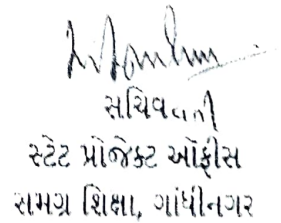 સચિવ વતી
સ્ટેટ પ્રોજેક્ટ ઓફીસ
સમગ્ર શિક્ષા, ગાંધીનગર